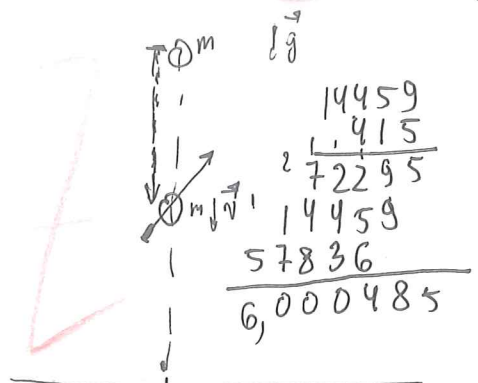 m ↓g⃗
14459
1,415
2 72295
m↓v⃗ 14459
57836
6,000485